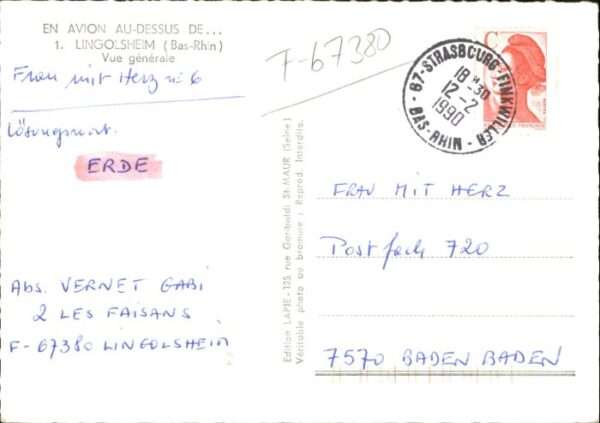 EN AVION AU-DESSUS DE...
1. LINGOLSHEIM (Bas-Rhin)
Vue générale
Frau mit Herz nr 6
Lösungswort.
ERDE
Abs. VERNET GABI
2 LES FAISANS
F-67380 LINGOLSHEIM
Edition LAPIE - 125 rue Garibaldi St-MAUR (Seine)
Véritable photo au bromure : Reprod. Interdite.
F-67380
67-STRASBOURG-FINKWILLER
18H-30
12-2
1990
BAS-RHIN
FRAU MIT HERZ
Postfach 720
7570 BADEN BADEN